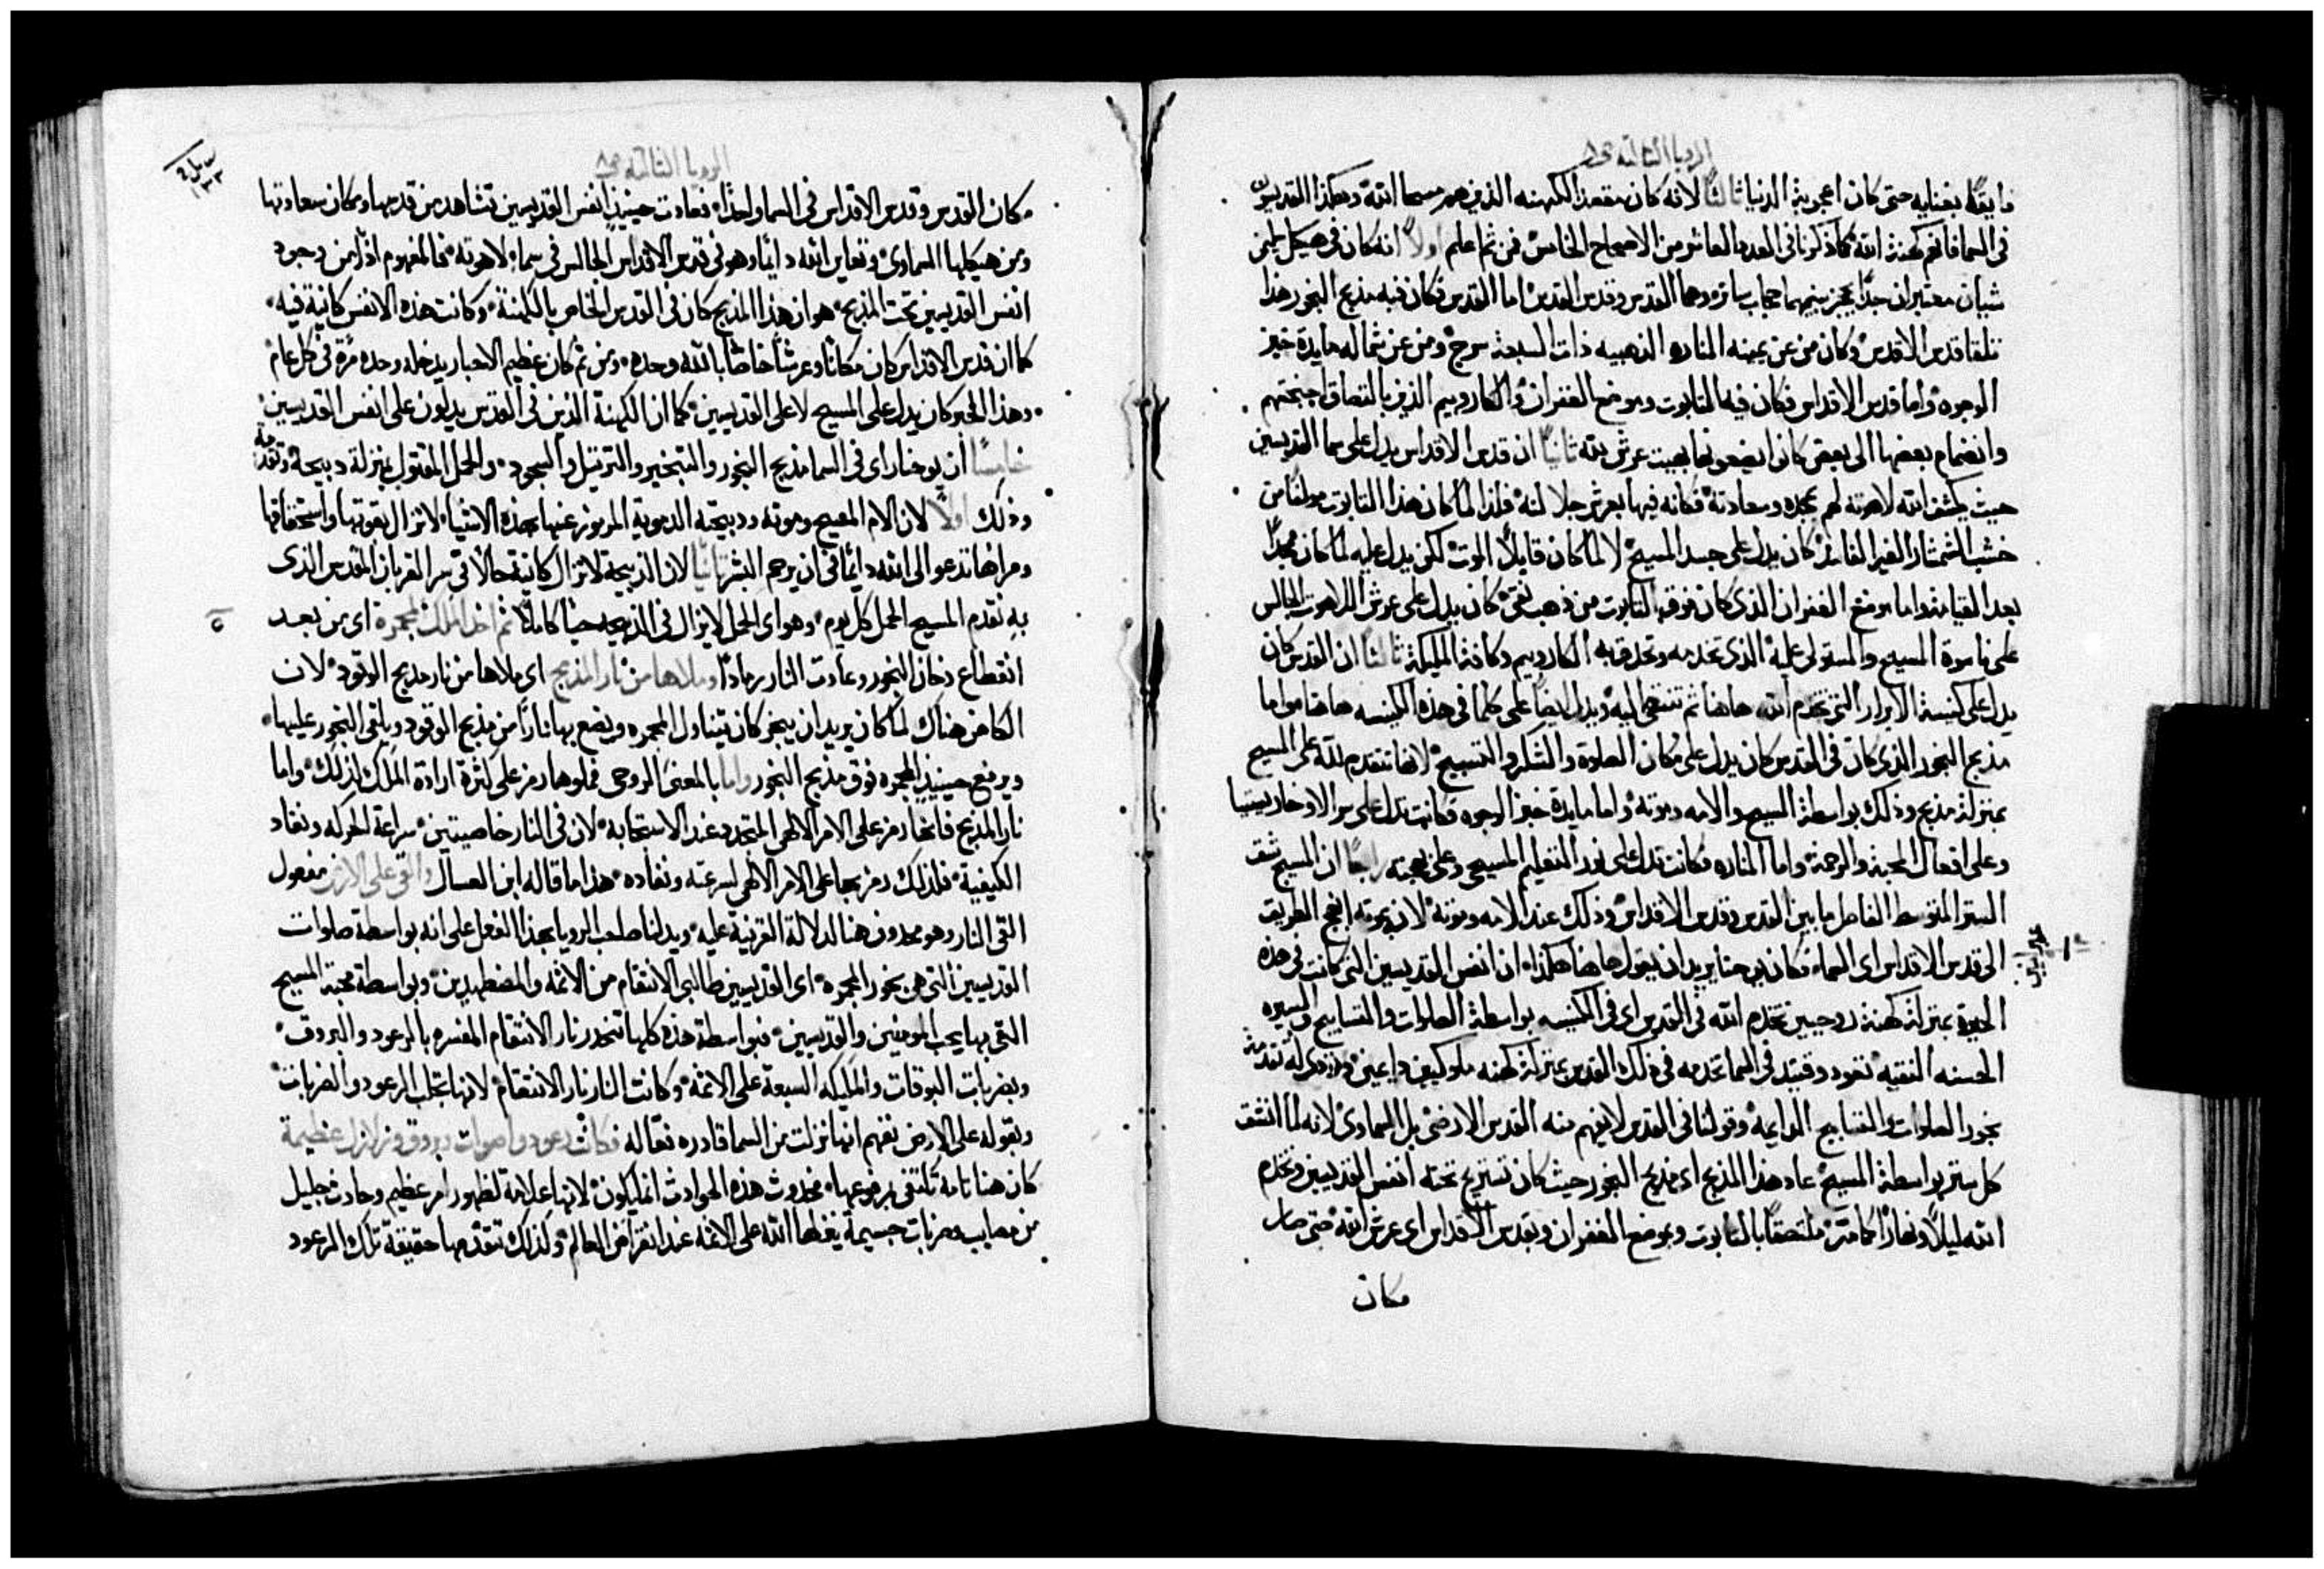 الرويا الثالثة ص٨
فايقًا بغنايه حتى كان اعجوبة الدنيا ثالثًا لانه كان مقعد الكهنه الذين هم مسحا الله وهكذا القديسون
في السما فانهم كهنة الله كما ذكرنا في العدد العاشر من الاصحاح الخامس فمن ثم اعلم اولاً انه كان في هيكل
شيان معتبران جدًا يحجز بينهما حجاب ساتر وهما القدس وقدس القدس اما القدس فكان فيه مذبح البخور هذا
تلقا قدس الاقدس وكان من عن يمينه المناره الذهبيه ذات السبعة سرج ومن عن شماله مايدة خبز
الوجوه واما قدس الاقداس فكان فيه التابوت وموضع الغفران والكاروبيم الذين بالتصاق اجنحتهم
وانضمام بعضها الى بعض كانوا يصنعون بهيت عرش لله ثانيًا ان قدس الاقداس يدل على سما القديسين
حيث يكشف الله لاهوته لهم بمجده وسعادته فكانه فيها بعرش جلالته فلذا لما كان هذا التابوت مولفًا من
خشب الشمشار الغير الفاسد كان يدل على جسد المسيح لا لما كان قابلاً الموت لكن يدل عليه لما كان ممجدًا
بعد القيامة واما موضع الغفران الذي كان فوق التابوت من ذهب نقي كان يدل على عرش اللاهوت الجالس
على ناسوة المسيح والمستولي عليه الذي تخدمه وتحدق به الكاروبيم وكافة المليكة ثالثًا ان القدس كان
يدل على كنيسة الابرار التي تخدم الله هاهنا ثم تنتهي اليه ويدل ايضًا على كلما في هذه الكنيسه هاهنا مواما
مذبح البخور الذي كان في القدس كان يدل على مكان الصلوة والشكر والتسبيح لانها تتقدم لله على المسيح
بمنزلة مذبح وذلك بواسطة المسيح والامه وموته واما مايدة خبز الوجوه فكانت تدل على سر الاوخارستيا
وعلى افعال المحبة والرحمة واما المناره فكانت تدل على نور التعليم المسيحي وعلى بهجته رابعًا ان المسيح شق
الستر المتوسط الفاصل ما بين القدس وقدس الاقداس وذلك عند الامه وموته لان بموته انفتح الطريق
الى قدس الاقداس اي السماء فكان يوحنا يريد ان يقول هاهنا هكذا ان انفس القديسين التي كانت في هذه
الحيوة بمنزلة كهنة روحيين تخدم الله في القدس اي في الكنيسه بواسطة الصلوات والتسابيح والسيره
الحسنه النقيه تعود وقتيذ في السما تخدمه في ذلك القدس بمنزلة كهنه ملوكيين دايمين وتودي له تقدمة
بخور الصلوات والتسابيح الدايمه وقولنا في القدس لا يفهم منه القدس الارضي بل السماوي لانه لما انشق
كل ستر بواسطة المسيح عاد هذا المذبح اي مذبح البخور حيث كان تستريح تحته انفس القديسين وتخدم
الله ليلاً ونهارًا كما متر ملتصقًا بالتابوت وبموضع الغفران وبقدس الاقداس اي عرش الله حتى صار
مكان
الرويا الثالثة ص٨
مكان القدس وقدس الاقداس في السما واحدًا فعادت حينيذٍ انفس القديسين تشاهد من قدسها ومكان سعادتها
ومن هيكلها السماوي وتعاين الله دايمًا وهو في قدس الاقداس الجالس في سماء لاهوته فالمفهوم اذًا من وجود
انفس القديسين تحت المذبح هو ان هذا المذبح كان في القدس الخاص بالكهنة وكانت هذه الانفس كاينة فيه
كما ان قدس الاقداس كان مكانًا وعرشًا خاصًا بالله وحده ومن ثم كان عظيم الاحبار يدخله وحده مرة في كل عام
وهذا الحبر كان يدل على المسيح لا على القديسين كما ان الكهنة الذين في القدس يدلون على انفس القديسين
خامسًا ان يوحنا راى في السما مذبح البخور والتبخير والترتيل والسجود والحمل المقتول بمنزلة ذبيحة وتقدمة
وذلك اولاً لان الام المسيح وموته وذبيحته الدموية المرموز عنها بهذه الاشيا لا تزال بقوتها واستحقاقها
ومراضاتدعو الى الله دايمًا في ان يرحم البشر ثانيًا لان الذبيحة لا تزال كاينة حالاً في سر القربان المقدس الذي
به تقدم المسيح الحمل كل يوم وهو اي الحمل لا يزال في الذبيحه حيًا كاملاً ثم اخذ الملاك المجمرة اي من بعد
انقطاع دخان البخور وعادت النار رمادًا وملاها من نار المذبح اي ملاها من نار مذبح الوقود لان
الكاهن هناك لما كان يريد ان يبخر كان يتناول المجمره ويضع بها نارًا من مذبح الوقود ويلقى البخور عليها
ويرفع حينيذٍ المجمره فوق مذبح البخور واما بالمعنى الروحي فملوها رمز على كثرة ارادة الملاك لذلك واما
نار المذبح فانها رمز على الامر الالهي المتجدد عند الاستجابه لان في النار خاصيتين سراعة الحركه ونفاد
الكيفية فلذلك رمز بها على الامر الالهي لسرعته ونفاده هذا ما قاله ابن العسال والقى على الارض مفعول
القى النار وهو محذوف هنا لدلالة القرنية عليه ويدلنا صاحب الرويا بهذا الفعل على انه بواسطة صلوات
القديسين التي هي بخور المجمره اي القديسين طالبي الانتقام من الاثمه والمضطهدين وبواسطة محبة المسيح
التي بها يحب المومنين والقديسين فبواسطة هذه كلها تنحدر نار الانتقام المفسره بالرعود والبروق
وبضربات البوقات والمليكه السبعة على الاثمه وكانت النار نار الانتقام لانها تجلب الرعود والضربات
وبقوله على الارض نفهم انها نزلت من السما قادره فعاله فكانت رعود واصوات وبروق وزلازل عظيمة
كان هنا تامة تكتفي بمرفوعها فحدوث هذه الحوادث انما يكون لانها علامة لظهور امر عظيم وحادث جليل
من مصايب وضربات جسيمة يفعلها الله على الاثمه عند انقراض العالم ولذلك تتقدمها حقيقة تلك الرعود